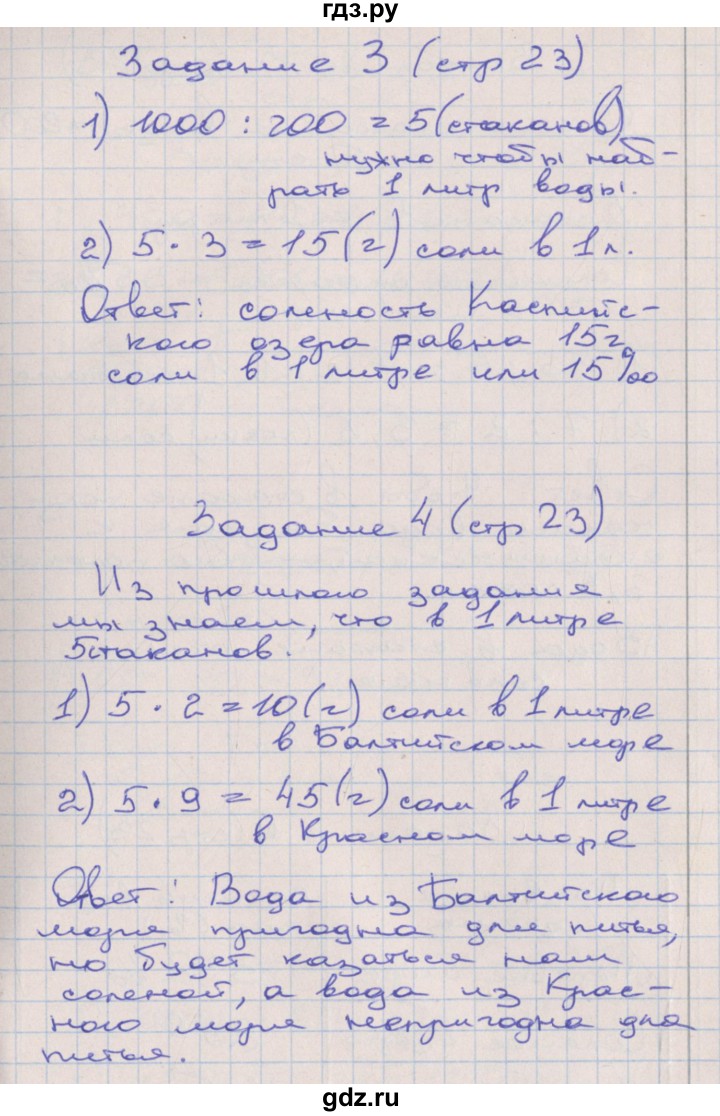 гдз.ру
Задание 3 (стр 23)
1) 1000 : 200 = 5 (стаканов)
нужно чтобы наб-
рать 1 литр воды.
2) 5 · 3 = 15 (г) соли в 1 л.
Ответ: соленость Каспийс-
кого озера равна 15 г
соли в 1 литре или 15‰
Задание 4 (стр 23)
Из прошлого задания
мы знаем, что в 1 литре
5 стаканов.
1) 5 · 2 = 10 (г) соли в 1 литре
в Балтийском море
2) 5 · 9 = 45 (г) соли в 1 литре
в Красном море
Ответ: Вода из Балтийского
моря пригодна для питья,
но будет казаться нам
соленой, а вода из Крас-
ного моря непригодна для
питья.
gdz.ru